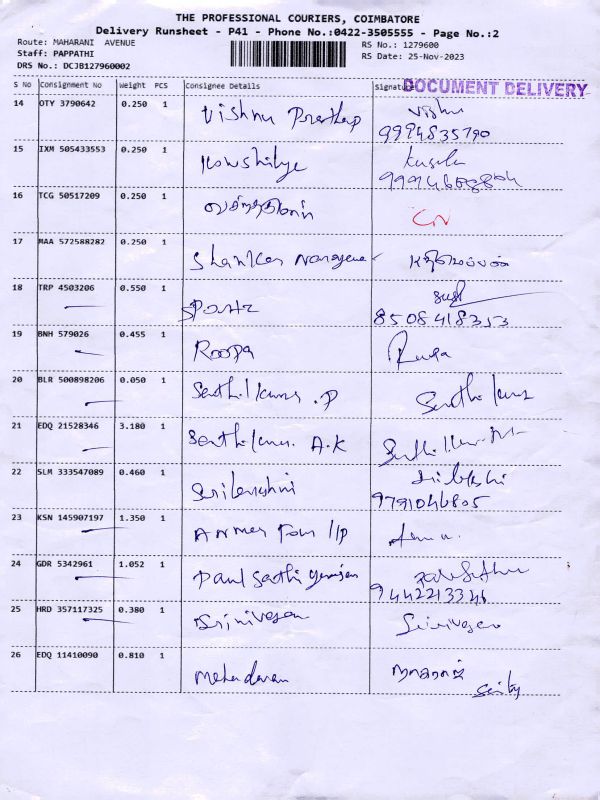 THE PROFESSIONAL COURIERS, COIMBATORE
Delivery Runsheet - P41 - Phone No.:0422-3505555 - Page No.:2
Route: MAHARANI AVENUE
RS No.: 1279600
Staff: PAPPATHI
RS Date: 25-Nov-2023
DRS No.: DCJB127960002
S No Consignment No Weight PCS Consignee Details Signature
DOCUMENT DELIVERY
14 OTY 3790642 0.250 1 Vishnu Prathap Vishnu
9994835790
15 IXM 505433553 0.250 1
16 TCG 50517209 0.250 1
17 MAA 572588282 0.250 1 Shankar Narayana
18 TRP 4503206 0.550 1 Sportz
8508418353
19 BNH 579026 0.455 1 Roopa Rupa
20 BLR 500898206 0.050 1 Senthil Kumar .P
21 EDQ 21528346 3.180 1 Senthilkumar A.K
22 SLM 333547089 0.460 1
9791046805
23 KSN 145907197 1.350 1
24 GDR 5342961 1.052 1 Paul
9442213346
25 HRD 357117325 0.380 1 Srinivasan Srinivasan
26 EDQ 11410090 0.810 1